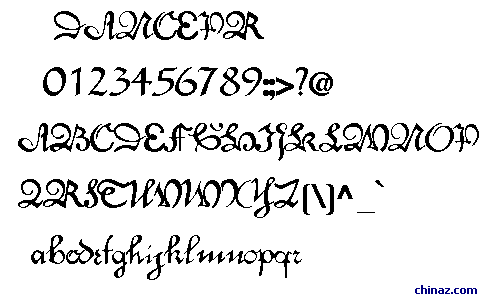 DANCEPR
0123456789:;>?@
ABCDEFGHIJKLMNOP
QRSTUVWXYZ[\]^_`
abcdefghijklmnopqr
chinaz.com